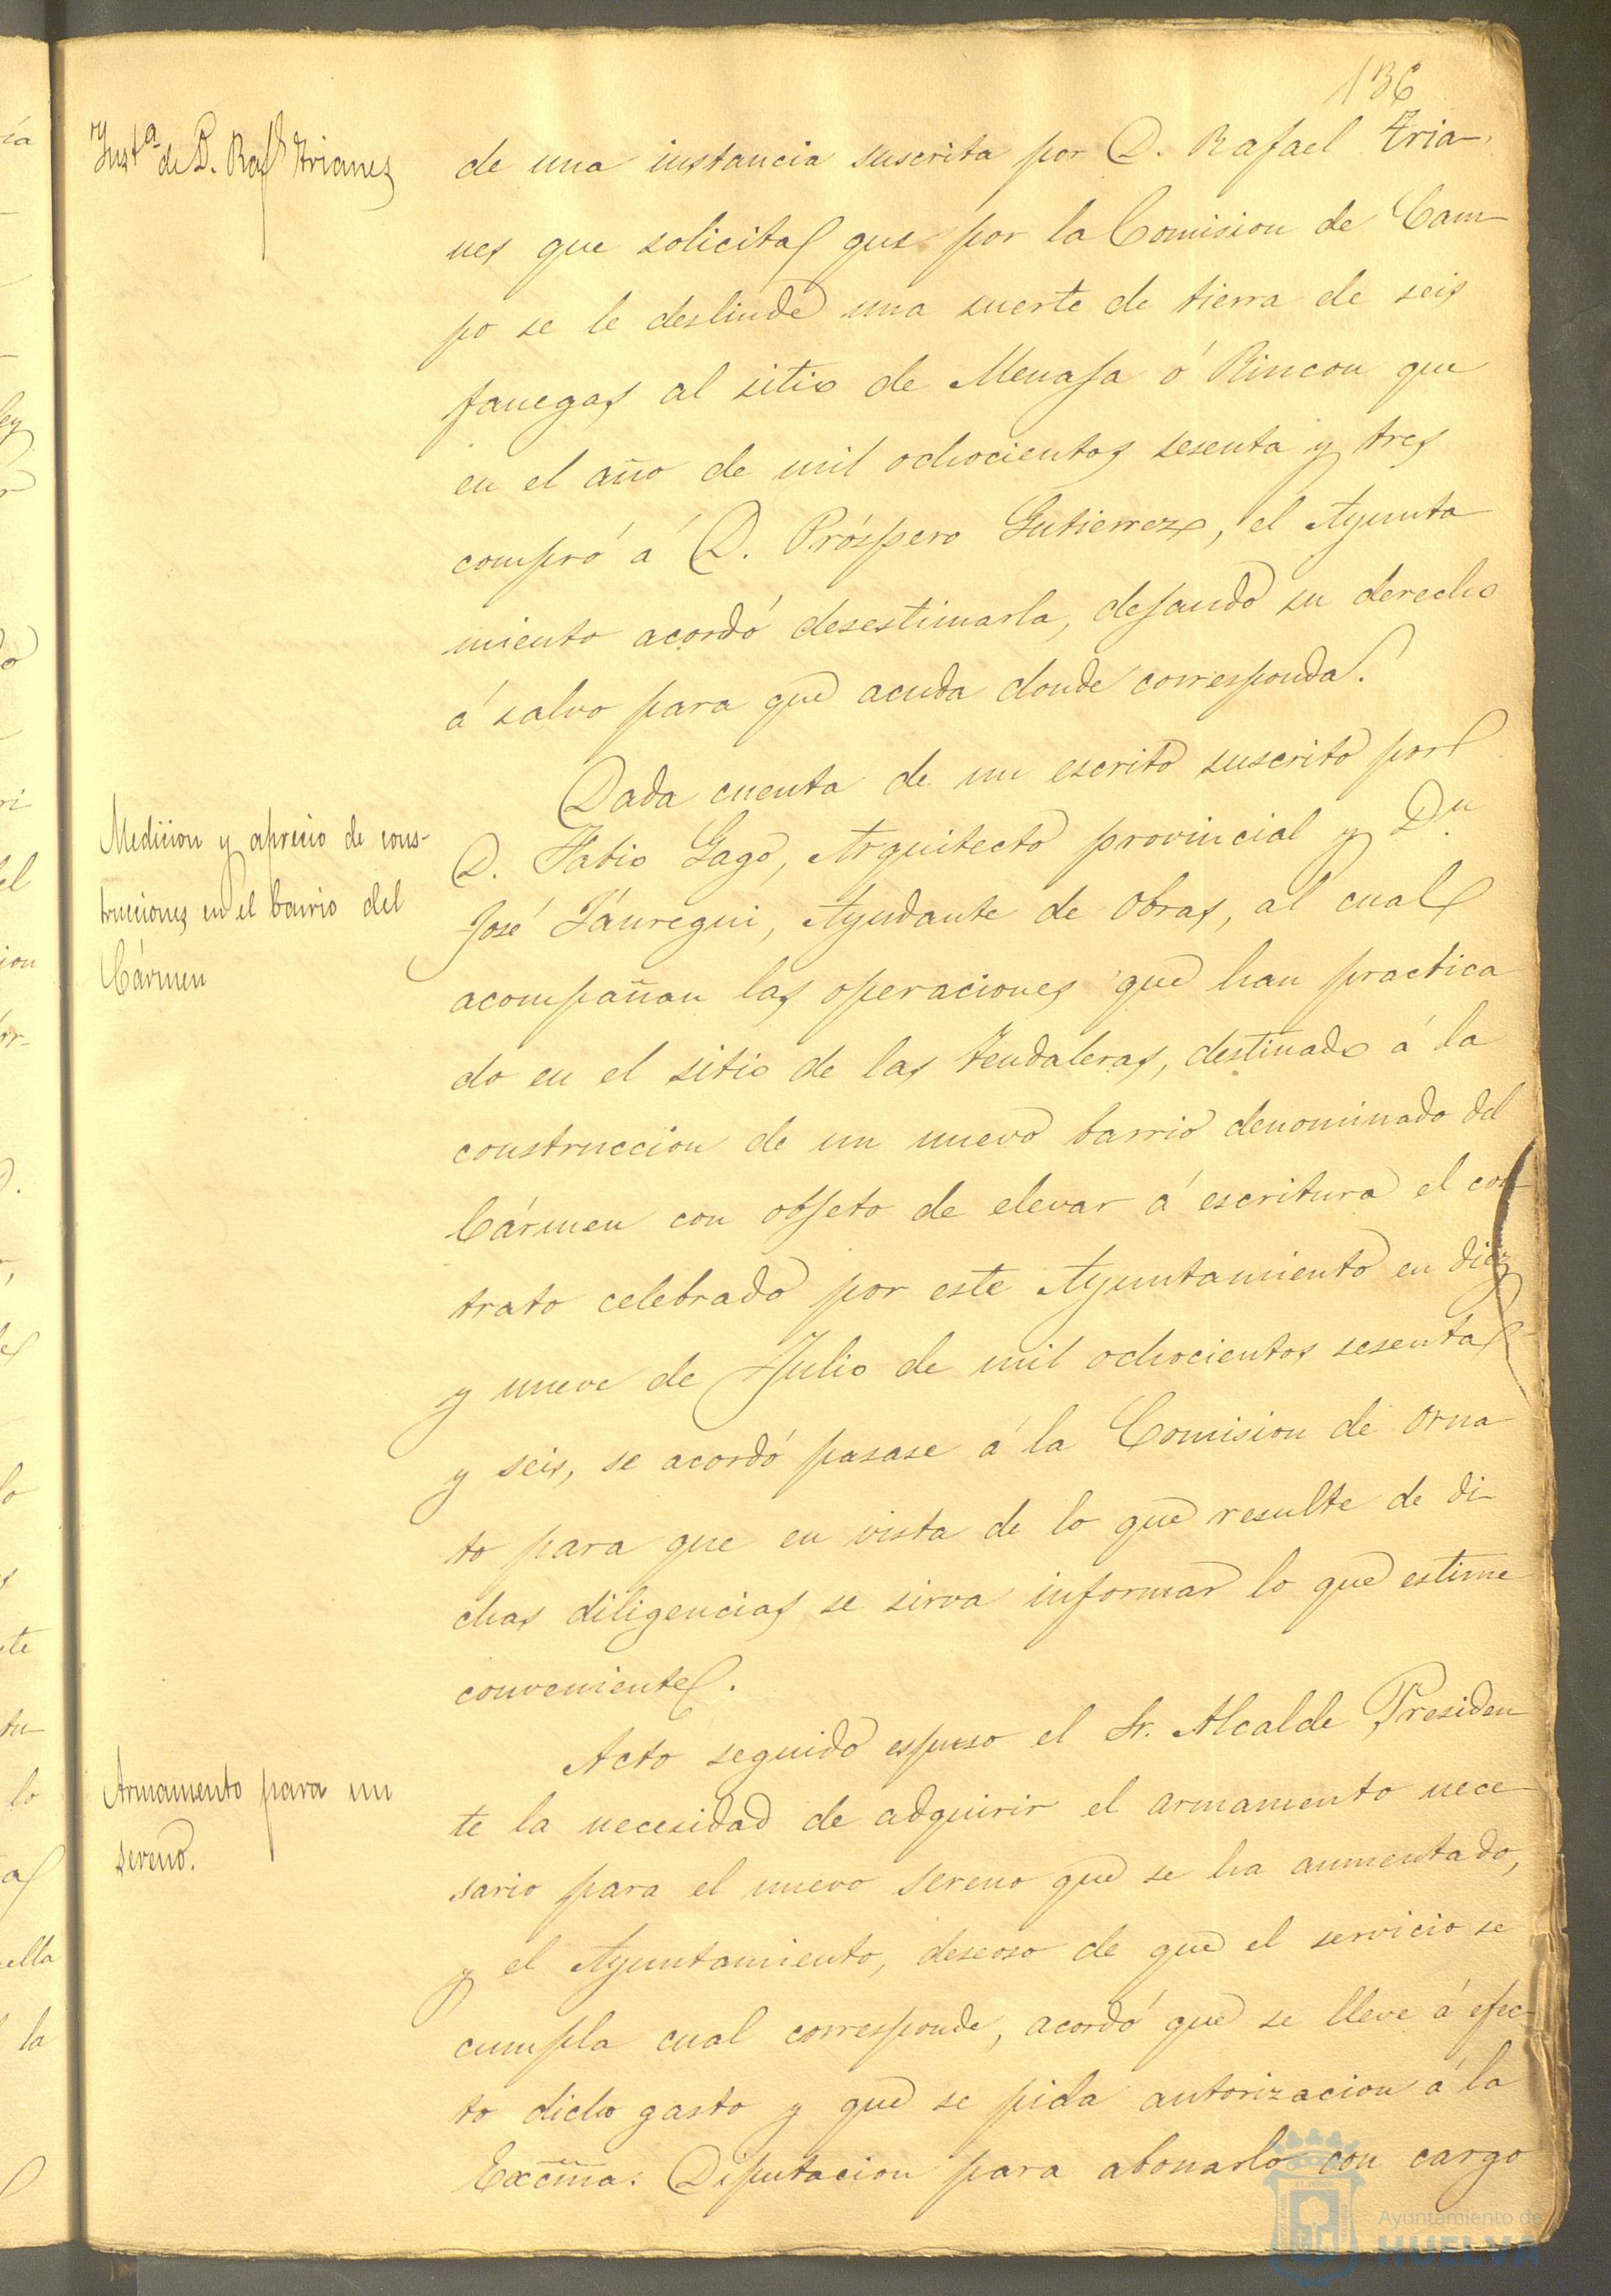 136
Inst.ª de D. Raf.l Arianes
de una instancia suscrita por D. Rafael Aria-
nes que solicita que por la Comision de Cam-
po se le deslinde una suerte de tierra de seis
fanegas al sitio de Menaja ó Rincon que
en el año de mil ochocientos sesenta y tres
compró á D. Próspero Gutierrez, el Ayunta
miento acordó desestimarla, dejando su derecho
á salvo para que acuda donde corresponda.
Medicion y aprecio de cons-
trucciones en el barrio del
Cármen
Dada cuenta de un escrito suscrito por
D. Fabio Gago, Arquitecto provincial y Dn
José Jáuregui, Ayudante de Obras, al cual
acompañan las operaciones que han practica
do en el sitio de las Tendaleras, destinado á la
construccion de un nuevo barrio denominado del
Cármen con objeto de elevar á escritura el con-
trato celebrado por este Ayuntamiento en diez
y nueve de Julio de mil ochocientos sesenta
y seis, se acordó pasase á la Comision de Orna
to para que en vista de lo que resulte de di-
chas diligencias se sirva informar lo que estime
conveniente.
Armamento para un
sereno.
Acto seguido espuso el Sr. Alcalde Presiden
te la necesidad de adquirir el armamento nece
sario para el nuevo sereno que se ha aumentado,
y el Ayuntamiento, deseoso de que el servicio se
cumpla cual corresponde, acordó que se lleve á efec-
to dicho gasto y que se pida autorizacion á la
Excma. Diputacion para abonarlo con cargo
Ayuntamiento de
HUELVA